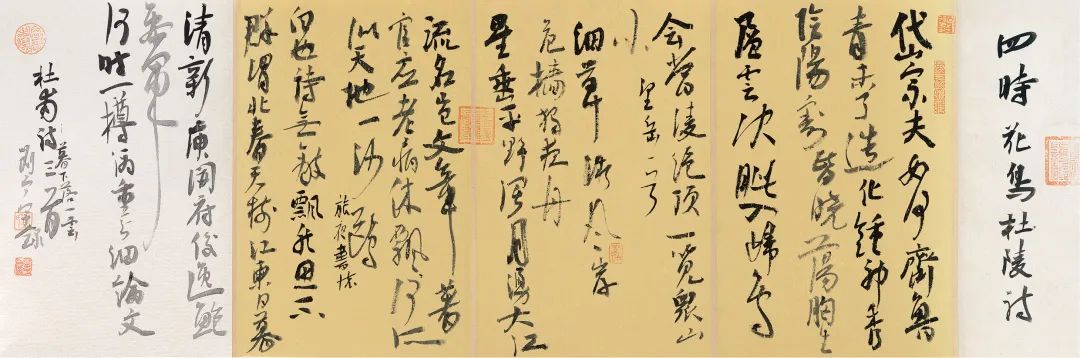 四時花鳥杜陵詩
岱宗夫如何齊魯
青未了造化鍾神秀
陰陽割昏曉蕩胸生
層雲決眦入歸鳥
会當陵絕頂一覽眾山
小 望岳一首
細草微風岸
危檣獨夜舟
星垂平野闊月湧大江
流名豈文章著
官应老病休飄飄何所
似天地一沙鷗
旅夜書懷
白也詩無敵飄然思不
群渭北春天樹江東日暮
清新庾開府俊逸鮑
參軍
何時一樽酒重與細論文
杜甫詩三首
暮下落一雲